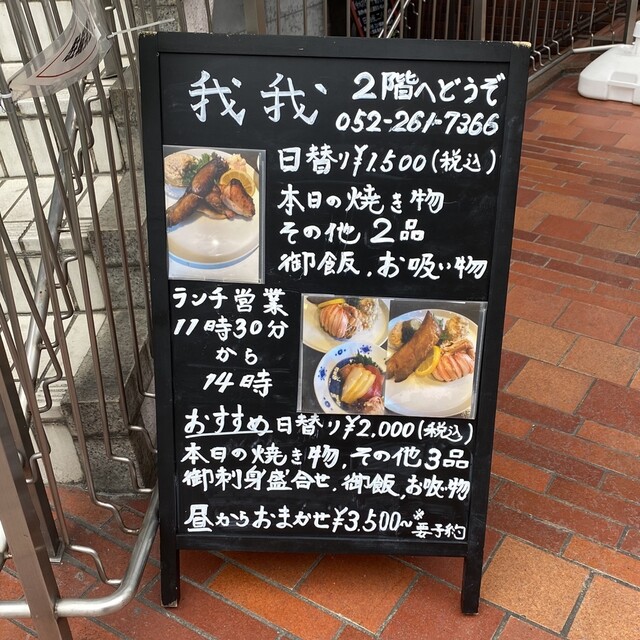 我我
2階へどうぞ
052-261-7366
日替り¥1.500(税込)
本日の焼き物
その他2品
御飯.お吸い物
ランチ営業
11時30分
から
14時
おすすめ日替り¥2.000(税込)
本日の焼き物.その他3品
御刺身盛合せ.御飯.お吸い物
昼からおまかせ¥3.500~※要予約